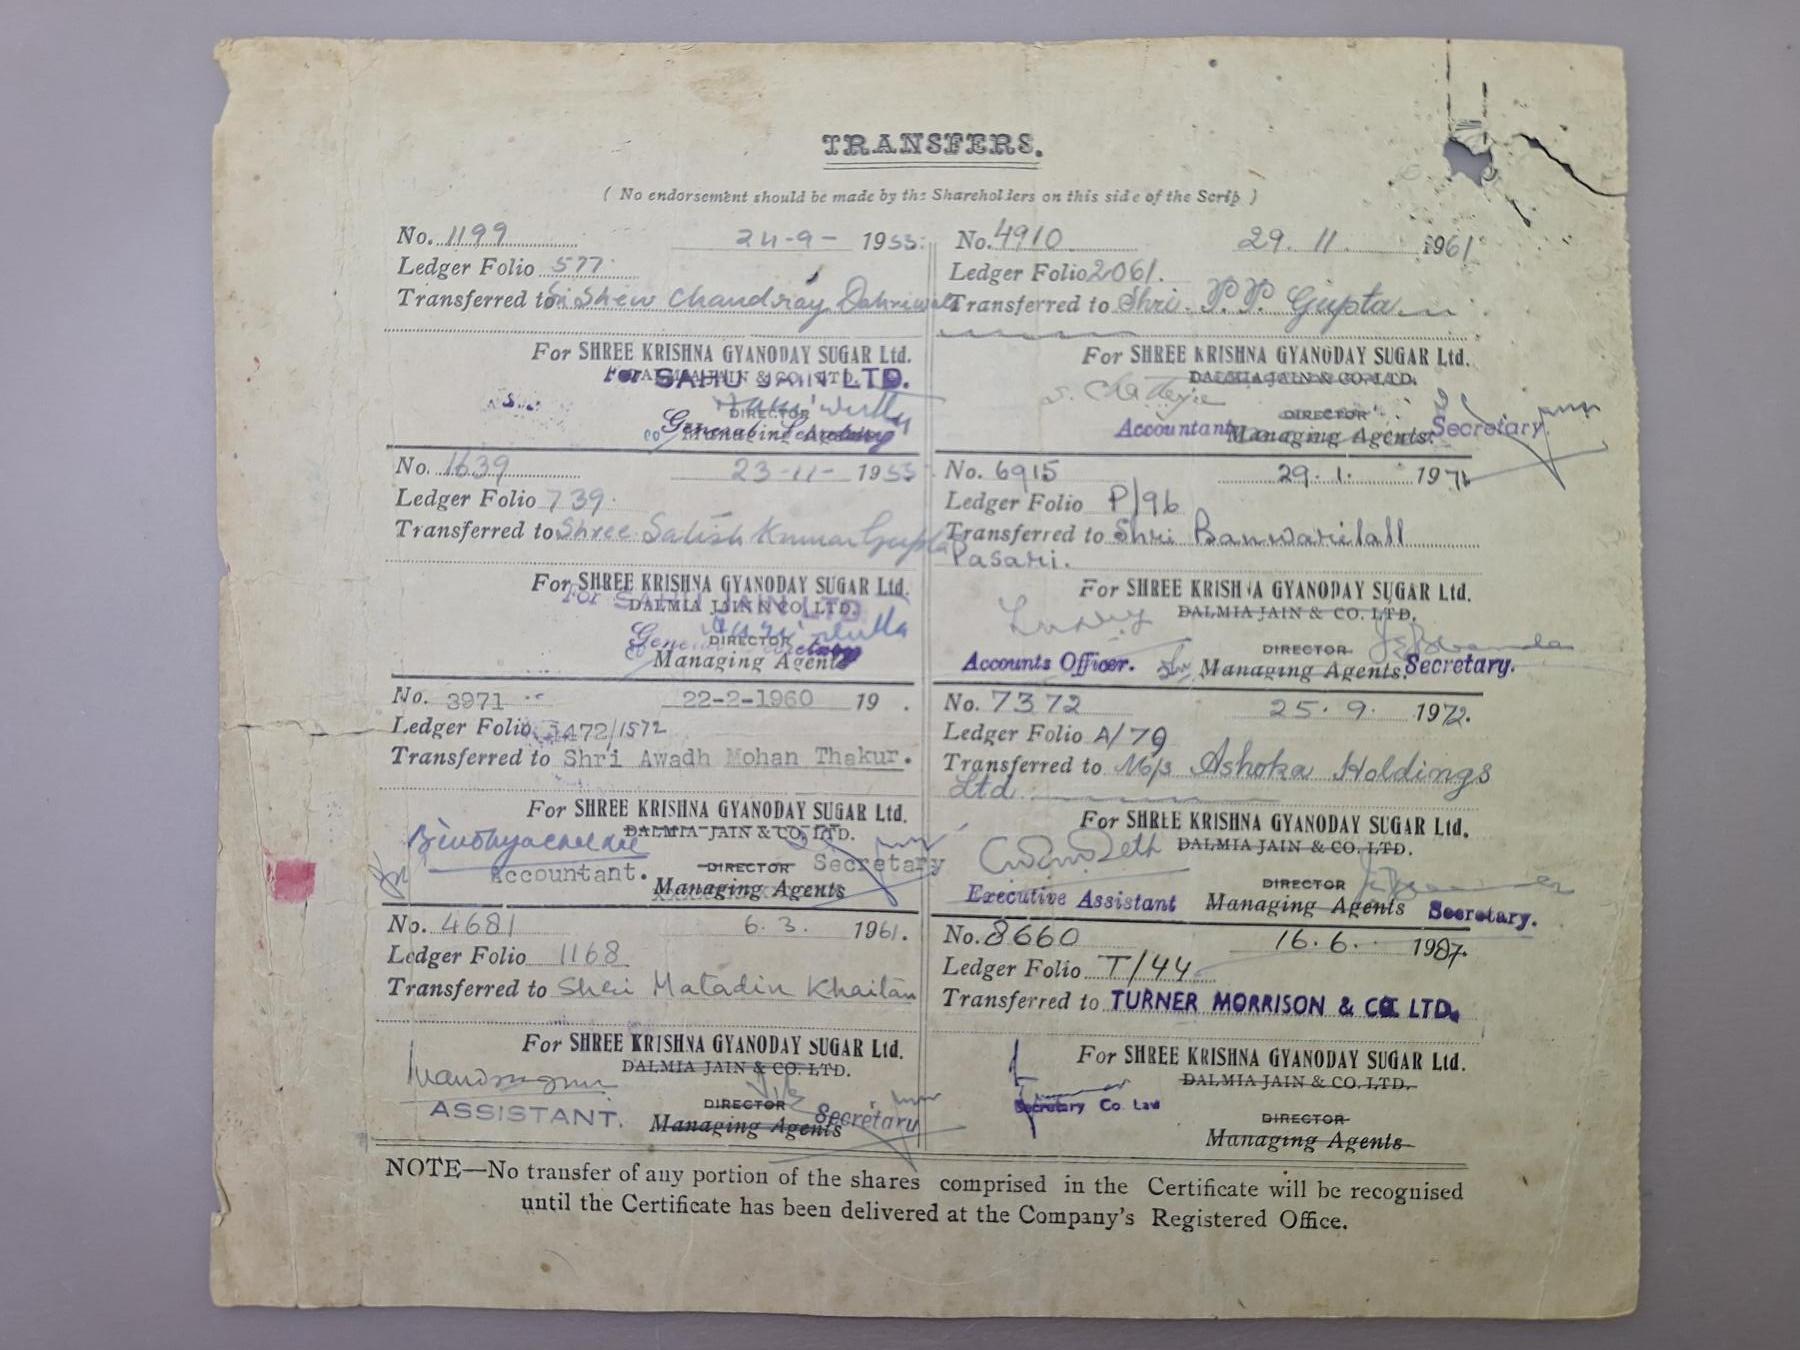 TRANSFERS.
( No endorsement should be made by the Shareholders on this side of the Scrip )
No. 1199 24-9- 1953.
Ledger Folio 577
Transferred to Sri Shew Chandray
For SHREE KRISHNA GYANODAY SUGAR Ltd.
For SAHU JAIN LTD.
DIRECTOR
General Secretary
No. 1639 23-11- 1953
Ledger Folio 739
Transferred to Shree Satish Kumar Gupta
For SHREE KRISHNA GYANODAY SUGAR Ltd.
For SAHU JAIN LTD.
DALMIA JAIN & CO. LTD.
DIRECTOR
General Secretary
Managing Agents
No. 3971 22-2-1960 19 .
Ledger Folio 1472/1572
Transferred to Shri Awadh Mohan Thakur.
For SHREE KRISHNA GYANODAY SUGAR Ltd.
DALMIA JAIN & CO. LTD.
DIRECTOR Secretary
Accountant. Managing Agents
No. 4681 6. 3. 1961.
Ledger Folio 1168
Transferred to Shri Matadin Khaitan
For SHREE KRISHNA GYANODAY SUGAR Ltd.
DALMIA JAIN & CO. LTD.
DIRECTOR
ASSISTANT. Managing Agents Secretary
No. 4910 29. 11. 1961
Ledger Folio 2061.
Transferred to Shri. P. P. Gupta
For SHREE KRISHNA GYANODAY SUGAR Ltd.
DALMIA JAIN & CO. LTD.
DIRECTOR
Accountant Managing Agents. Secretary.
No. 6915 29. 1. 1971
Ledger Folio P/96
Transferred to Shri Banwarilall
Pasari.
For SHREE KRISHNA GYANODAY SUGAR Ltd.
DALMIA JAIN & CO. LTD.
DIRECTOR
Accounts Officer. Managing Agents. Secretary.
No. 7372 25. 9. 1972.
Ledger Folio A/79
Transferred to M/s Ashoka Holdings
Ltd.
For SHREE KRISHNA GYANODAY SUGAR Ltd.
DALMIA JAIN & CO. LTD.
DIRECTOR
Executive Assistant Managing Agents Secretary.
No. 8660 16. 6. 1987.
Ledger Folio T/44
Transferred to TURNER MORRISON & CO. LTD.
For SHREE KRISHNA GYANODAY SUGAR Ltd.
DALMIA JAIN & CO. LTD.
Secretary Co. Law
DIRECTOR
Managing Agents
NOTE—No transfer of any portion of the shares comprised in the Certificate will be recognised
until the Certificate has been delivered at the Company's Registered Office.